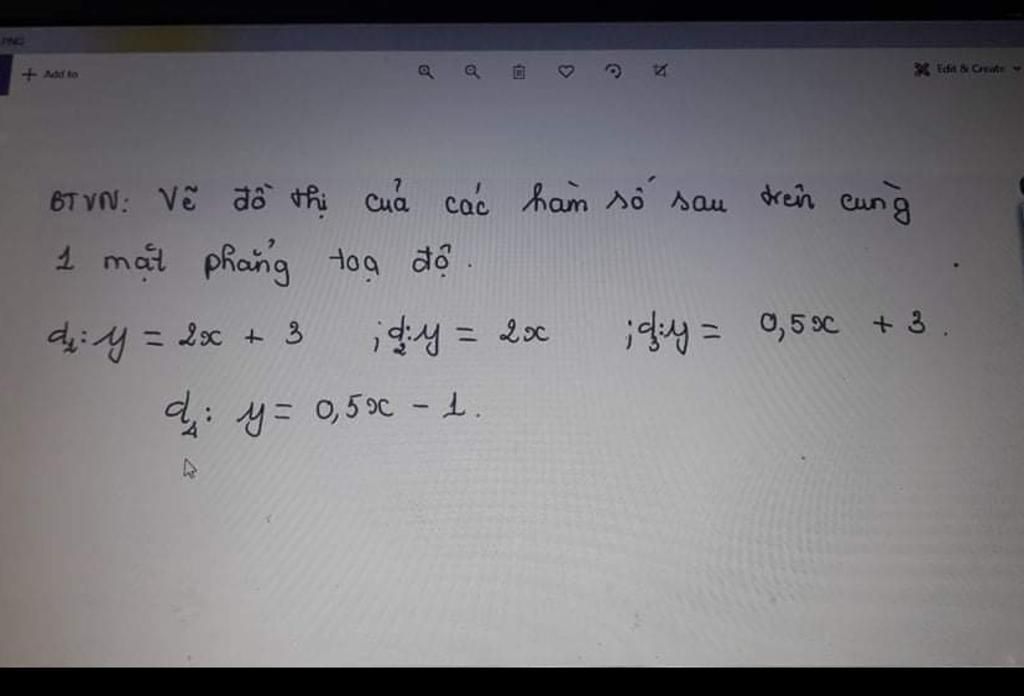 .PNG
+ Add to
Edit & Create
BTVN: Vẽ đồ thị của các hàm số sau trên cùng
1 mặt phẳng toạ độ.
d₁: y = 2x + 3 ; d₂: y = 2x ; d₃: y = 0,5x + 3.
d₄: y = 0,5x - 1.